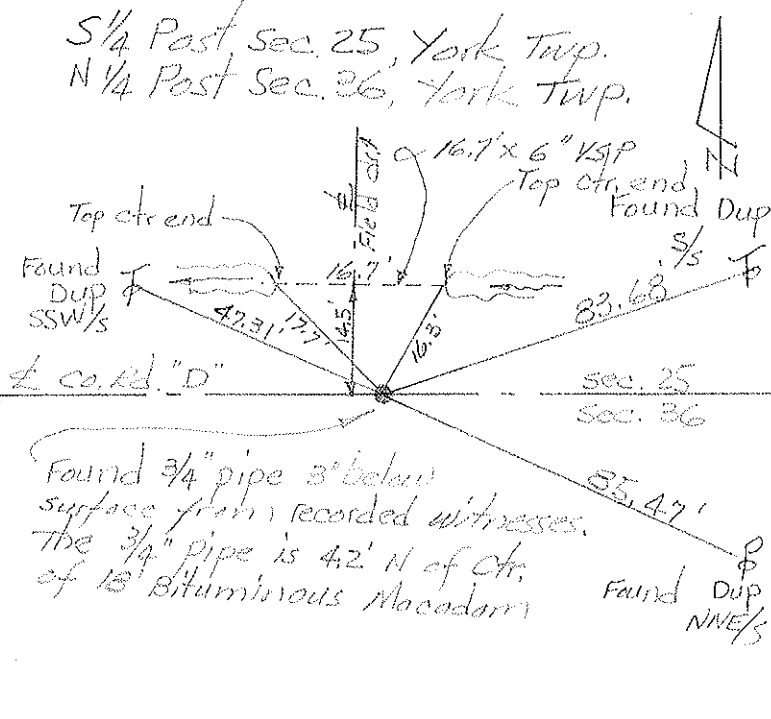 S 1/4 Post, Sec. 25, York Twp.
N 1/4 Post Sec. 36, York Twp.
16.7' x 6" VSP
Top ctr. end
Found Dup
S/S
N
℄ Field dr.
Top ctr end
Found
Dup
SSW/S
16.7'
14.5'
47.31'
17.7'
16.3'
83.68'
℄ Co. Rd. "D"
Sec. 25
Sec. 36
Found 3/4" pipe 3" below
surface from recorded witnesses.
The 3/4" pipe is 4.2' N of Ctr.
of 18' Bituminous Macadam
85.47'
Found Dup
NNE/S